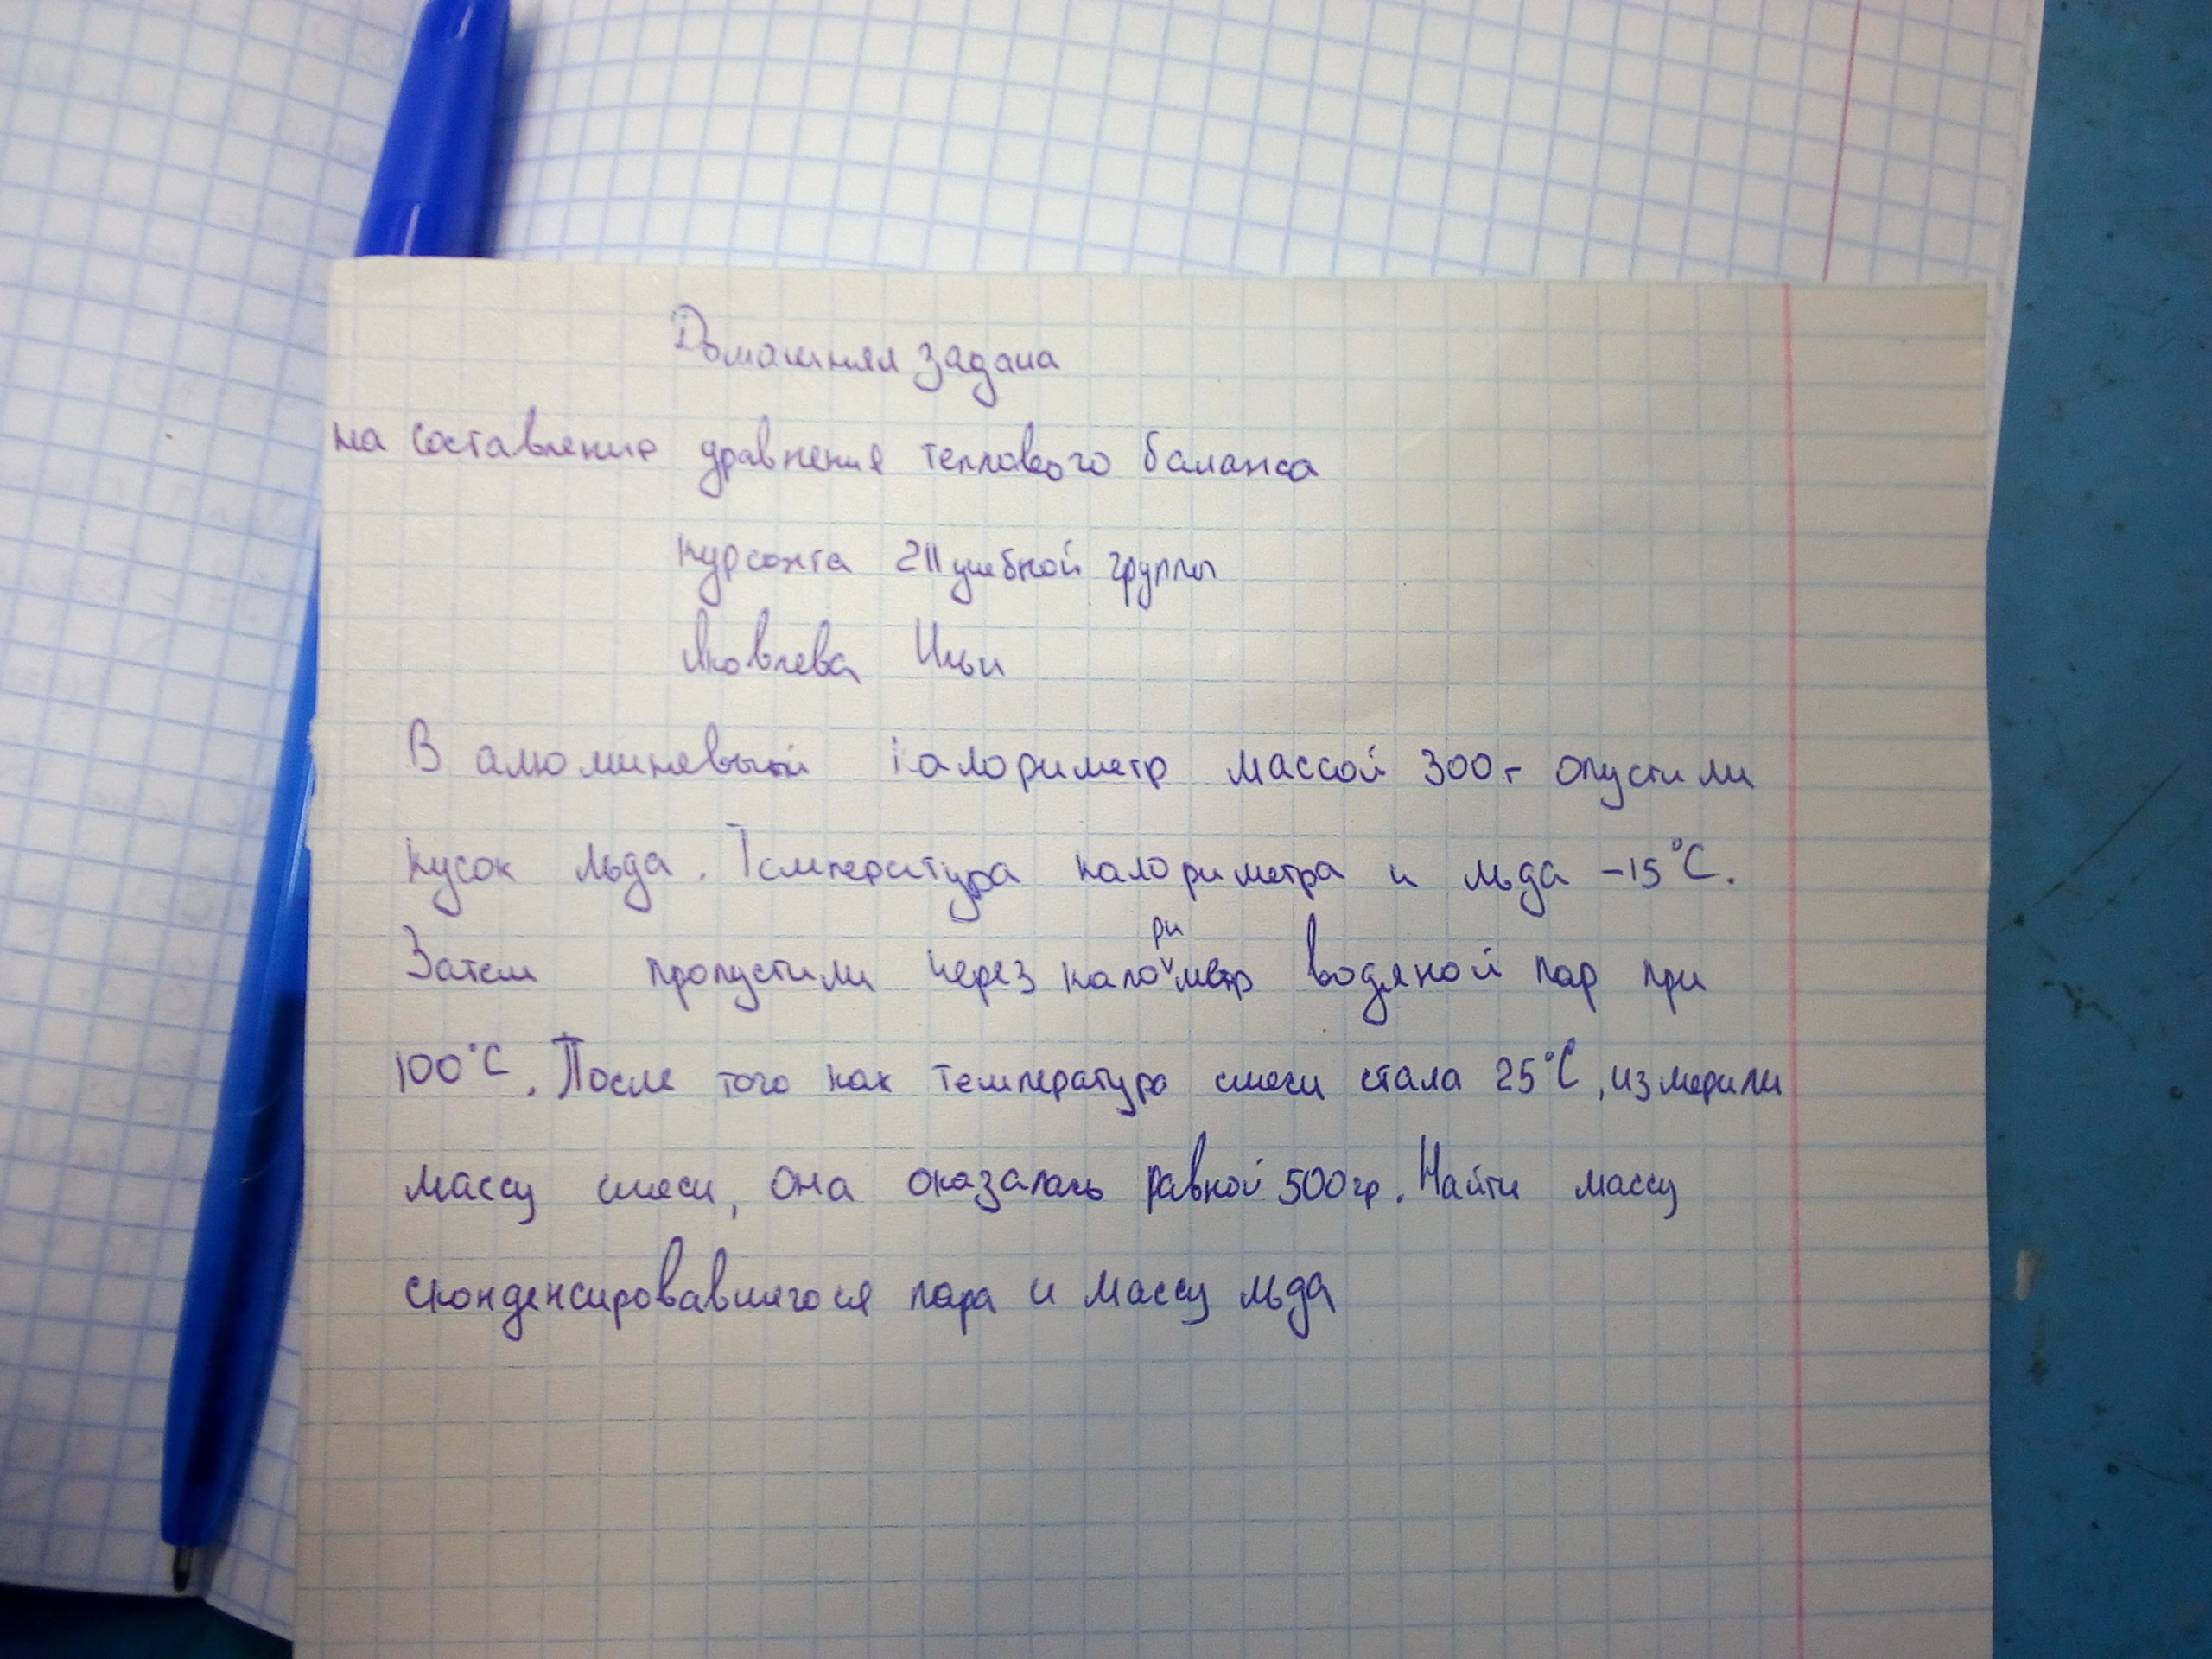 Домашняя задача
на составление уравнения теплового баланса
курсанта 211 учебной группы
Яковлева Ильи
В алюминевый калориметр массой 300г опустили
кусок льда. Температура калориметра и льда -15°С.
Затем пропустили через калориметр водяной пар при
100°С. После того как температура смеси стала 25°С, измерили
массу смеси, она оказалась равной 500гр. Найти массу
сконденсировавшегося пара и массу льда